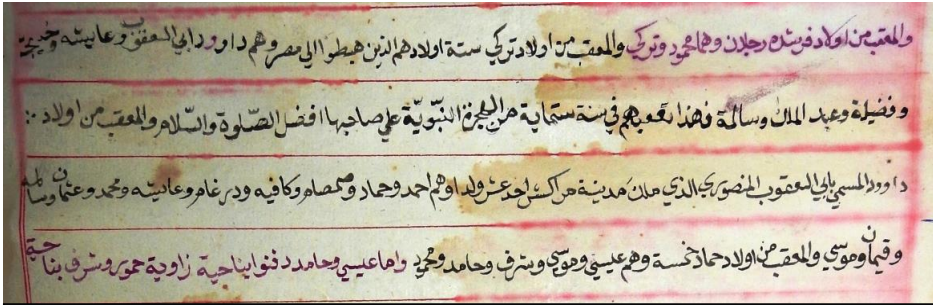 والمعقب من اولاد قرشده رجلان وهما محمود وتركي والمعقب من اولاد تركي ستة اولاد هم الذين هبطوا الي مصر وهم داوود ابي اليعقوب وعايشه وخديجة
وفضيلة وعبد الملك وسالمة فهذا تعقيبهم في سنة ستماية من الهجرة النبّويّة علي صاحبها افضل الصّلوة والسّلام والمعقب من اولاد
داوود المسمي بابي اليعقوب المنصوري الذي ملك مدينة مراكش احد عشر ولدا وهم احمد وحماد وصمصام وكافيه ودرغام وعايشه ومحمد وعثمان وسالمه
وقيمان وموسي والمعقب من اولاد حماد خمسة وهم عيسي وموسي وشرف وحامد ومحمود واما عيسي وحامد دفنوا بناحية زاوية حمور وشرف بناحية